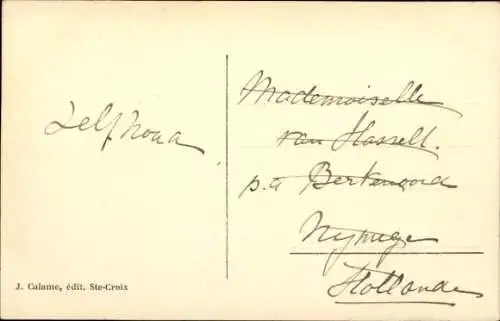 Mademoiselle
van Hasselt.
p.a Berkenoord
Nymege
Hollande
J. Calame, édit. Ste-Croix